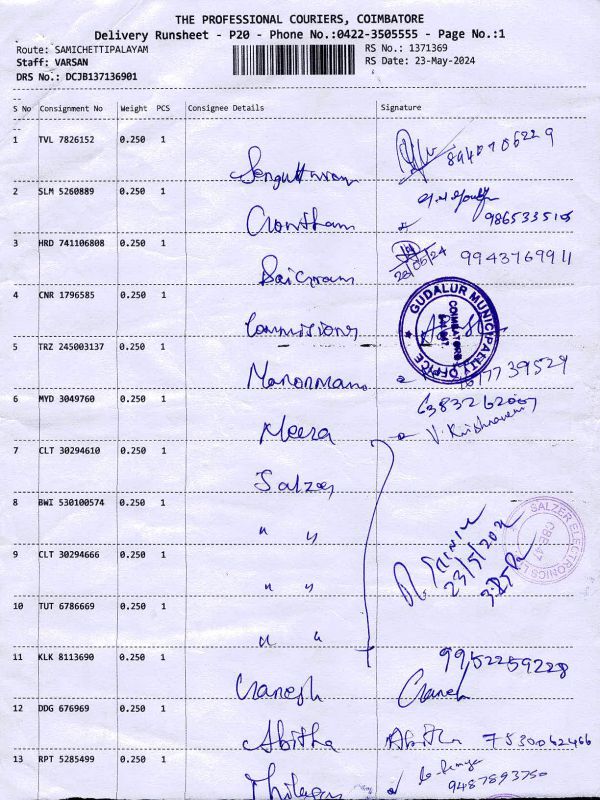 THE PROFESSIONAL COURIERS, COIMBATORE
Delivery Runsheet - P20 - Phone No.:0422-3505555 - Page No.:1
Route: SAMICHETTIPALAYAM
RS No.: 1371369
Staff: VARSAN
RS Date: 23-May-2024
DRS No.: DCJB137136901
S No Consignment No Weight PCS Consignee Details Signature
1 TVL 7826152 0.250 1
2 SLM 5260889 0.250 1 Gowtham
3 HRD 741106808 0.250 1 Sairam 9943769911
20/05/24
4 CNR 1796585 0.250 1 Commisioner
GUDALUR MUNICIPALITY OFFICE
COIMBATORE
5 TRZ 245003137 0.250 1
6 MYD 3049760 0.250 1 Meera
7 CLT 30294610 0.250 1 Salzer
8 BWI 530100574 0.250 1 " "
SALZER ELECTRONICS
CBE-47
23/5/2024
9 CLT 30294666 0.250 1 " "
10 TUT 6786669 0.250 1 " "
11 KLK 8113690 0.250 1 Ganesh Ganesh
9952259228
12 DDG 676969 0.250 1 Abitha Abitha 7530062466
13 RPT 5285499 0.250 1
9487893750